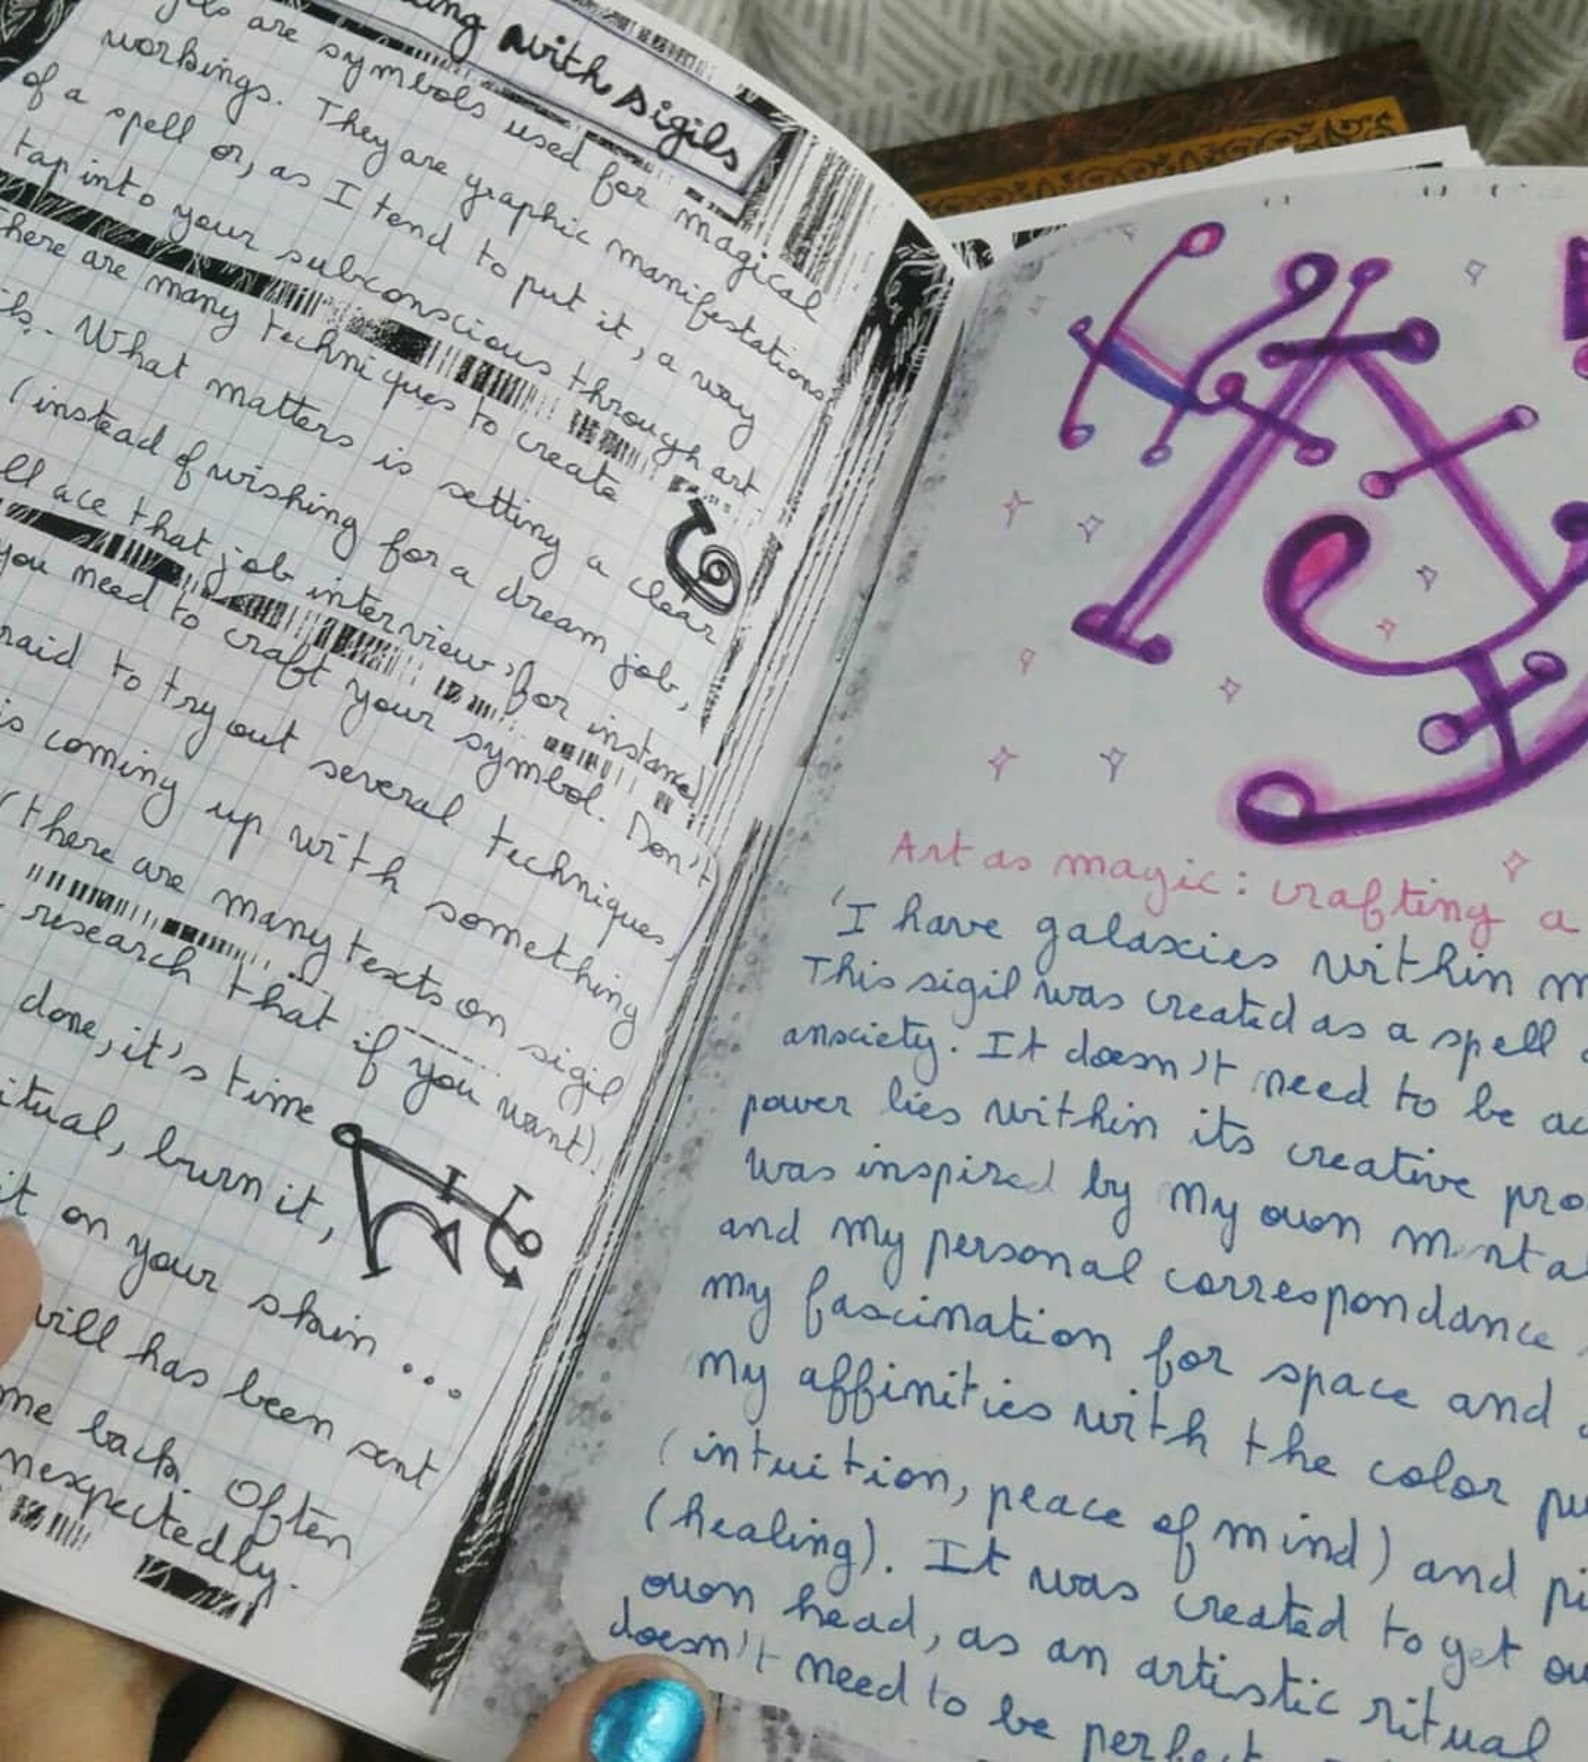 with sigils
are symbols used for magical
workings. They are graphic manifestations
of a spell or, as I tend to put it, a way
tap into your subconscious through art
there are many techniques to create
What matters is setting a clear
(instead of wishing for a dream job,
ace that job interview, for instance)
you need to craft your symbol. Don't
to try out several techniques,
coming up with something
(there are many texts on sigil
research that if you want).
done, it's time
burn it,
it on your skin ...
will has been sent
back. Often
unexpectedly.
Art as magic: crafting a
'I have galaxies within
This sigil was created as a spell
ansciety. It doesn't need to be
power lies within its creative
was inspired by my own mental
and my personal correspondance
my fascination for space and
my affinities with the color
(intuition, peace of mind) and
(healing). It was created to get
own head, as an artistic ritual
doesn't need to be perfect